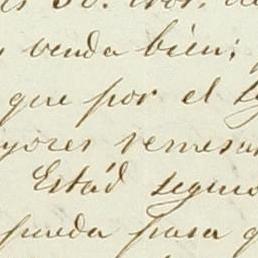 venda bien;
que por el
yores remesa
Estád seguro
pueda para q